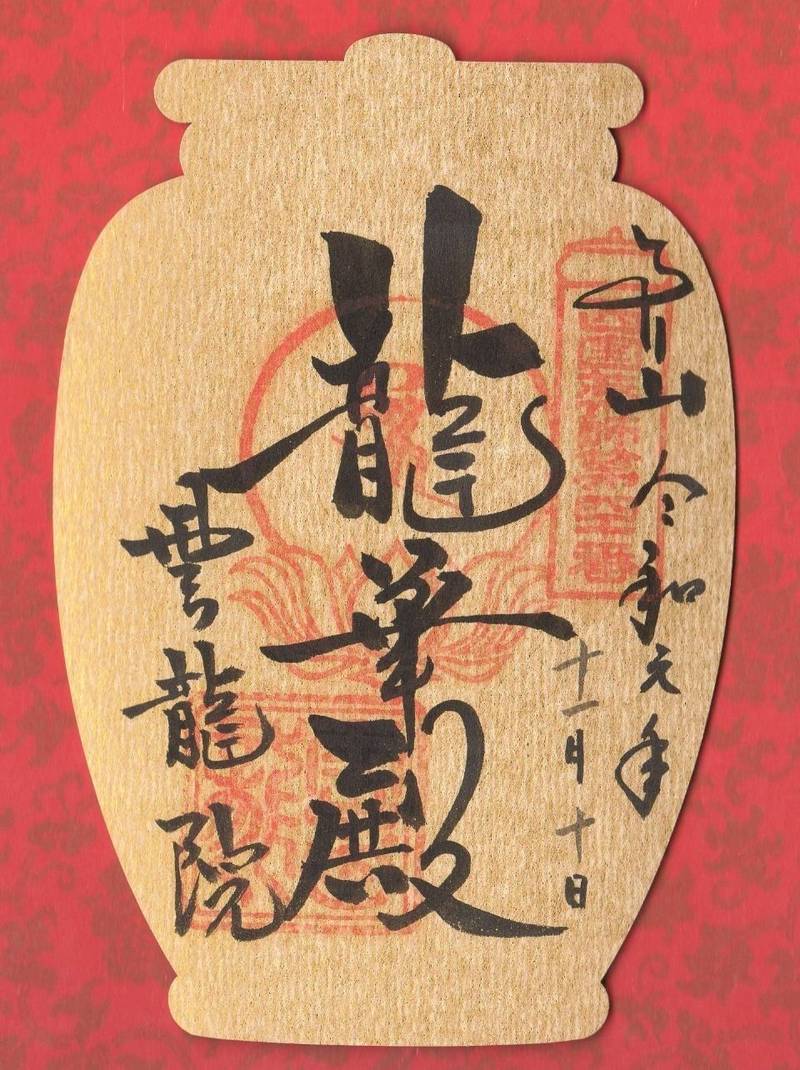 泉山 令和元年
十一月十日
龍華殿
雲龍院